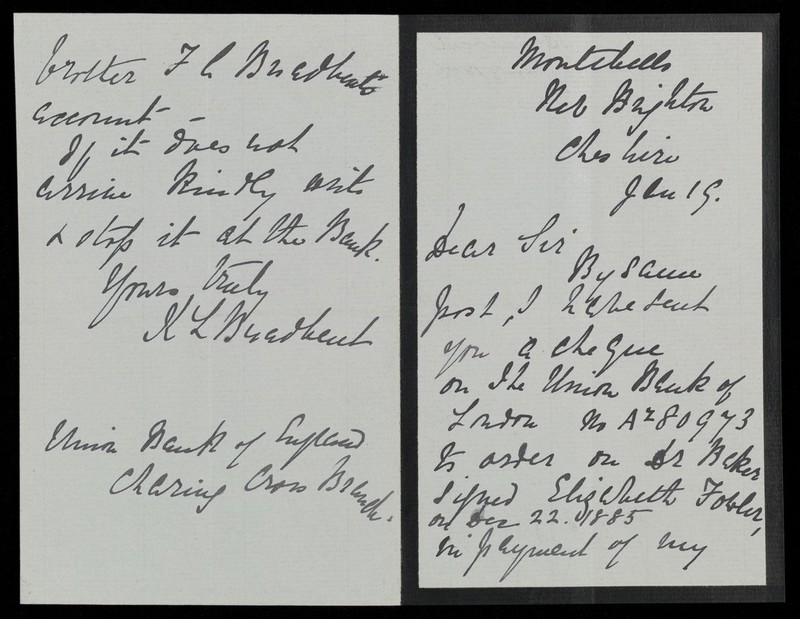 Montebello
New Brighton
Cheshire
Jan 19.
Dear Sir
By same
post, I have sent
you a cheque
on the Union Bank of
London No A280973
to order on Dr Baker
signed Elizabeth Fowler,
on Dec 22. 1885
in payment of my
brother F C Broadbents
account -
If it does not
arrive kindly write
& stop it at the Bank.
Yours truly
K L Broadbent
Union Bank of England
Charing Cross Branch.